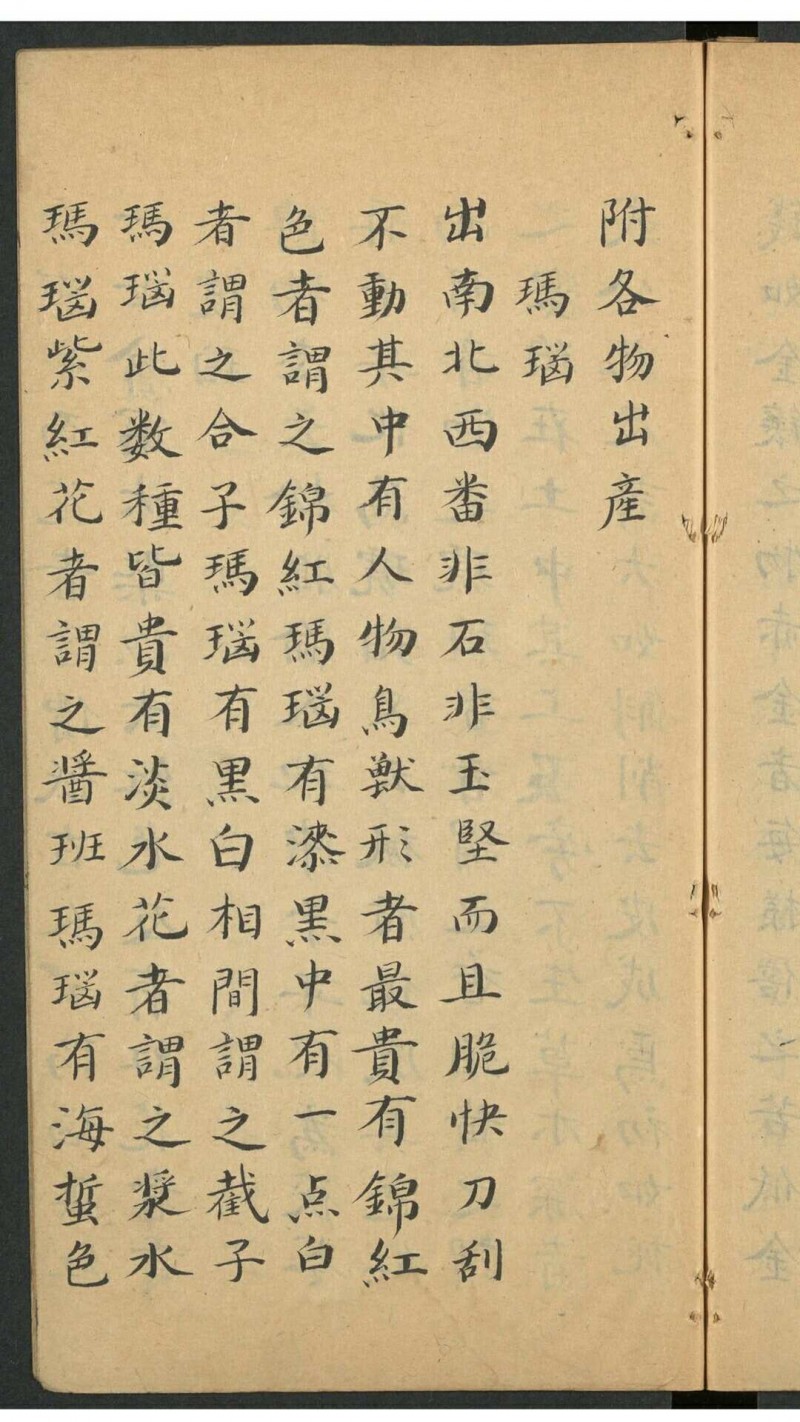 附各物出産
瑪瑙
出南北西番非石非玉堅而且脆快刀刮
不動其中有人物鳥獸形者最貴有錦紅
色者謂之錦紅瑪瑙有漆黒中有一点白
者謂之合子瑪瑙有黒白相間謂之截子
瑪瑙此数種皆貴有淡水花者謂之漿水
瑪瑙紫紅花者謂之醬班瑪瑙有海蜇色